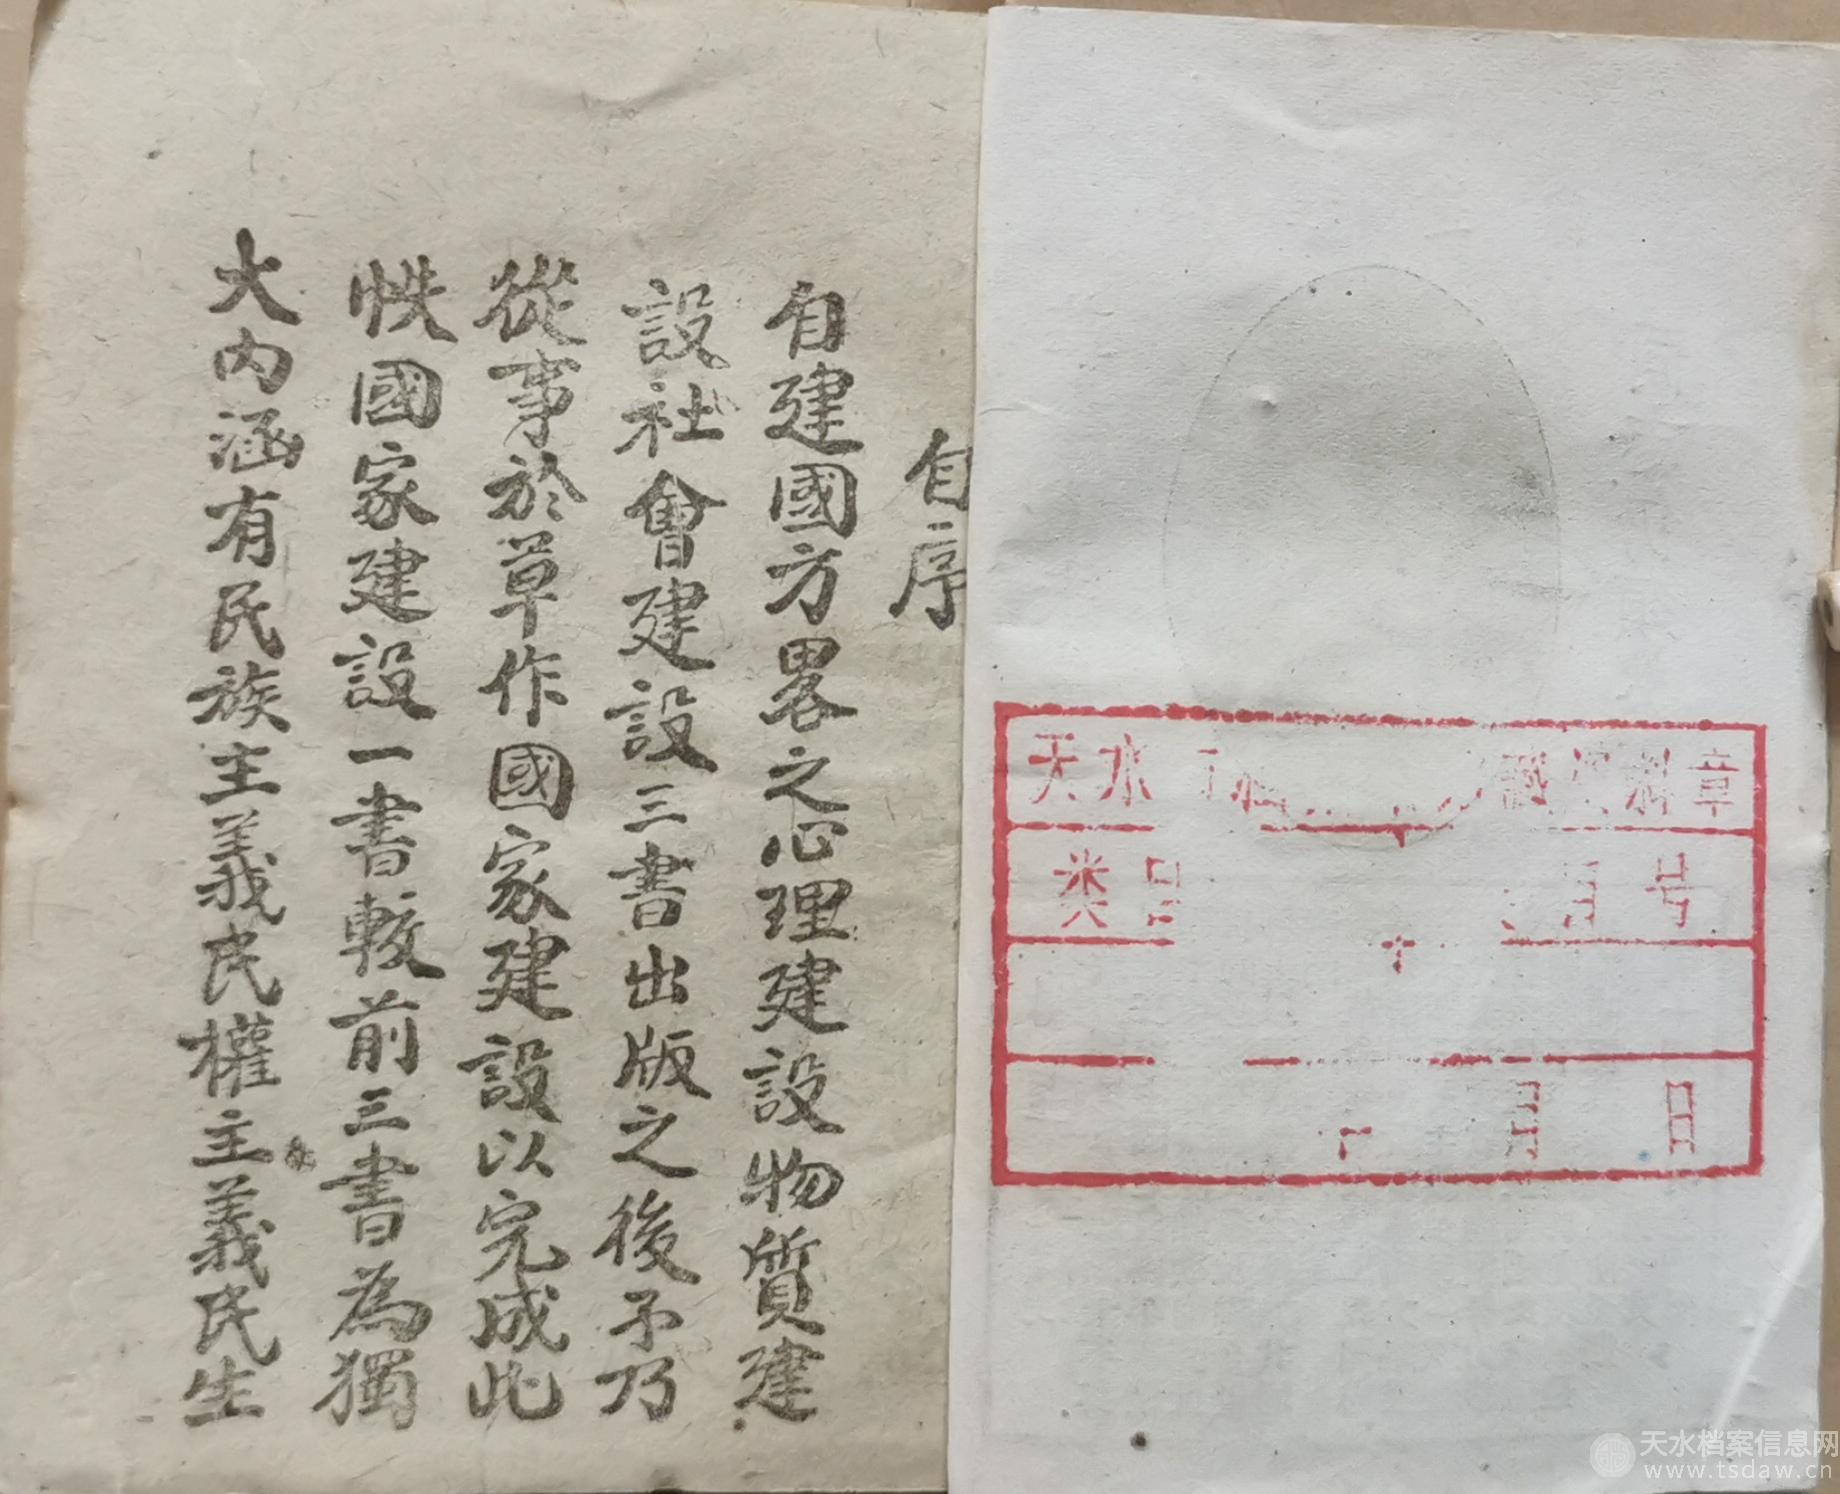 自序
自建國方畧之心理建設物質建
設社會建設三書出版之後予乃
從事於草作國家建設以完成此
帙國家建設一書較前三書為獨
大內涵有民族主義民權主義民生
天水 料章
类 号
月 日
天水档案信息网
www.tsdaw.cn